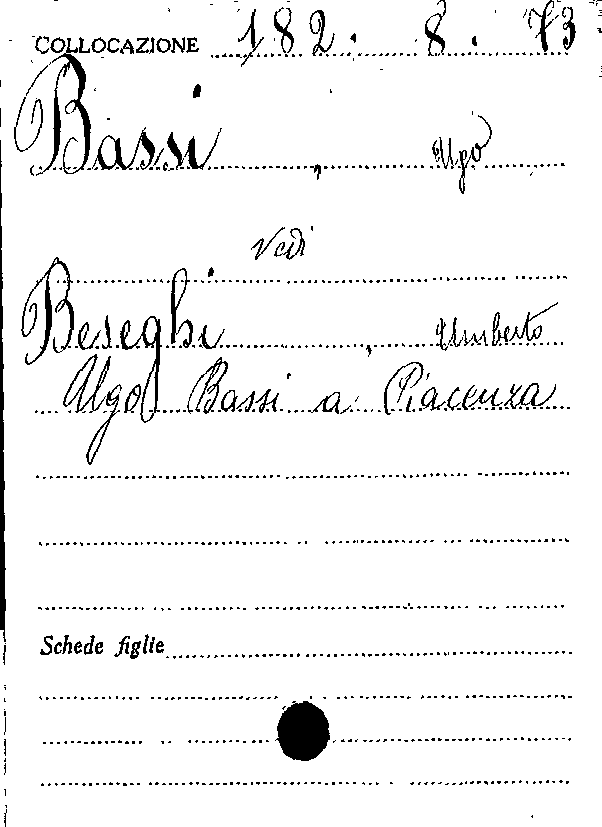 COLLOCAZIONE 182. 8. 73
Bassi, Ugo
Vedi
Beseghi, Umberto
Ugo Bassi a Piacenza
Schede figlie